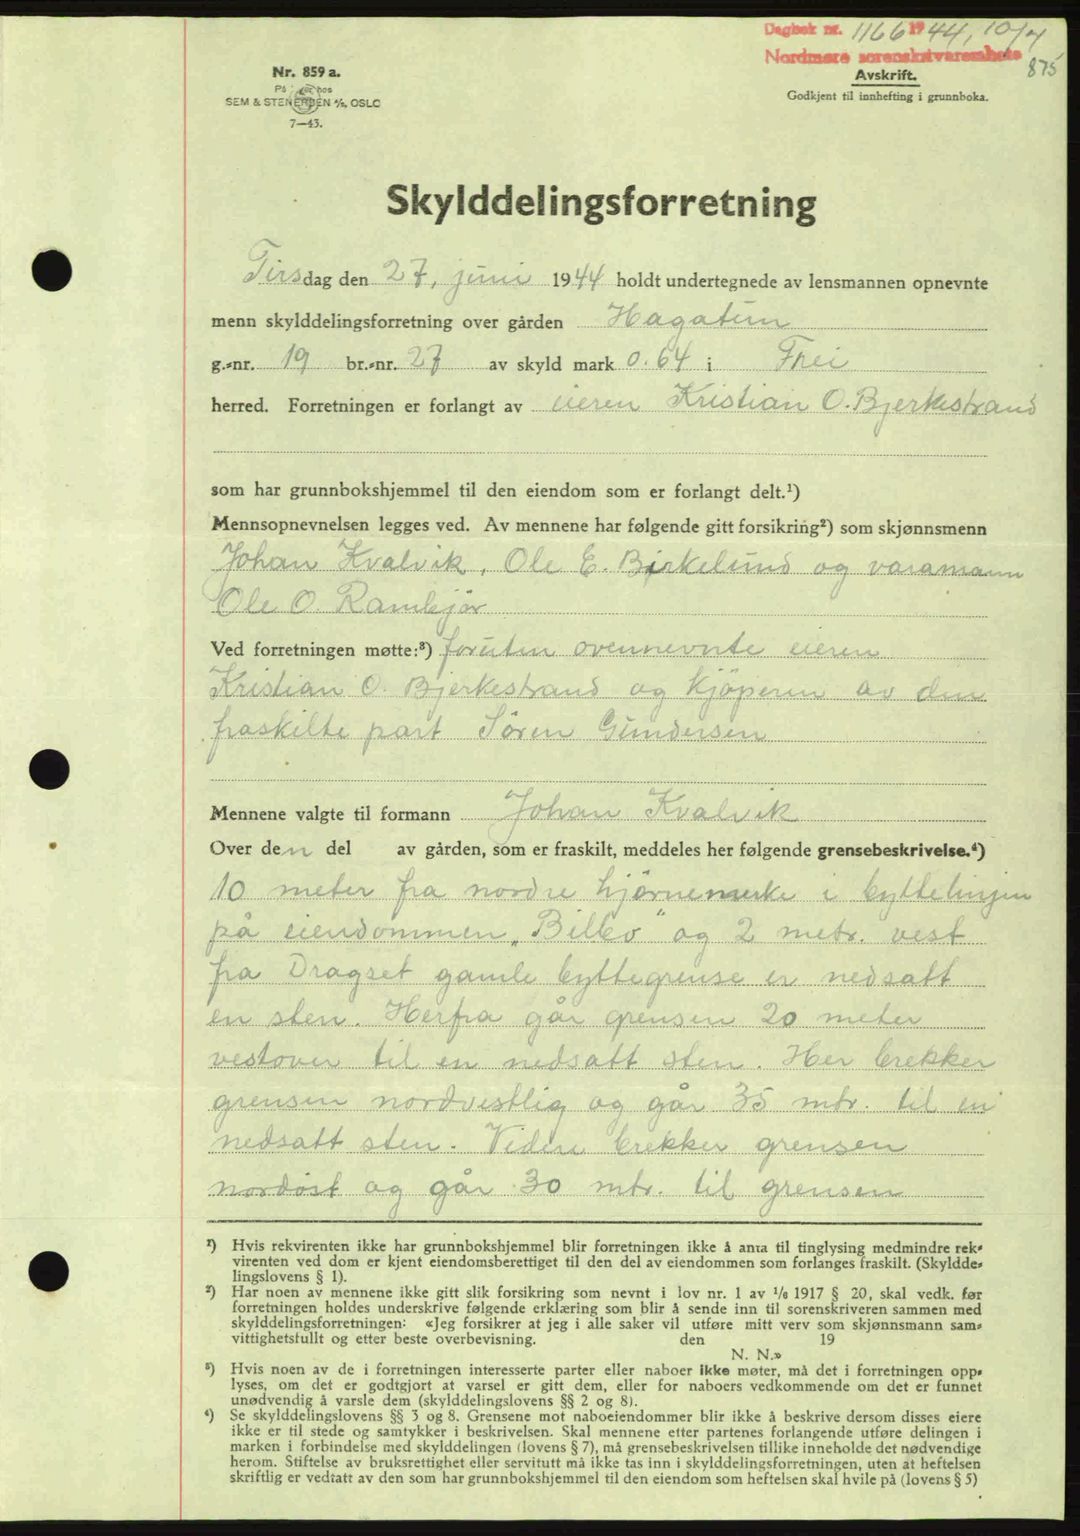 Dagbok nr. 1166 1944, 10/7
Nordmøre sorenskriverembete
875
Nr. 859 a.
SEM & STENERSEN A/S, OSLO
7—43.
Avskrift.
Godkjent til innhefting i grunnboka.
Skylddelingsforretning
Tirsdag den 27. juni 1944 holdt undertegnede av lensmannen opnevnte
menn skylddelingsforretning over gården Hagatun
g.-nr. 19 br.-nr. 27 av skyld mark 0.64 i Frei
herred. Forretningen er forlangt av eieren Kristian O. Bjerkestrand
som har grunnbokshjemmel til den eiendom som er forlangt delt.¹)
Mennsopnevnelsen legges ved. Av mennene har følgende gitt forsikring²) som skjønnsmenn
Johan Kvalvik, Ole E. Birkelund og varamann
Ole O. Rambjör
Ved forretningen møtte:³) foruten ovennevnte eieren
Kristian O. Bjerkestrand og kjöperen av den
fraskilte part Sören Gundersen
Mennene valgte til formann Johan Kvalvik
Over den del av gården, som er fraskilt, meddeles her følgende grensebeskrivelse.⁴)
10 meter fra nordre hjörnemerke i byttelinjen
på eiendommen „Billbo" og 2 metr. vest
fra Dragset gamle byttegrense er nedsatt
en sten. Herfra går grensen 20 meter
vestover til en nedsatt sten. Her brekker
grensen nordvestlig og går 35 mtr. til en
nedsatt sten. Videre brekker grensen
nordöst og går 30 mtr. til grensen
¹) Hvis rekvirenten ikke har grunnbokshjemmel blir forretningen ikke å anta til tinglysing medmindre rek-
virenten ved dom er kjent eiendomsberettiget til den del av eiendommen som forlanges fraskilt. (Skyldde-
lingslovens § 1).
²) Har noen av mennene ikke gitt slik forsikring som nevnt i lov nr. 1 av 1/6 1917 § 20, skal vedk. før
forretningen holdes underskrive følgende erklæring som blir å sende inn til sorenskriveren sammen med
skylddelingsforretningen: «Jeg forsikrer at jeg i alle saker vil utføre mitt verv som skjønnsmann sam-
vittighetsfullt og etter beste overbevisning. den 19
N. N.»
³) Hvis noen av de i forretningen interesserte parter eller naboer ikke møter, må det i forretningen opp-
lyses, om det er godtgjort at varsel er gitt dem, eller for naboers vedkommende om det er funnet
unødvendig å varsle dem (skylddelingslovens §§ 2 og 8).
⁴) Se skylddelingslovens §§ 3 og 8. Grensene mot naboeiendommer blir ikke å beskrive dersom disses eiere
ikke er til stede og samtykker i beskrivelsen. Skal mennene etter partenes forlangende utføre delingen i
marken i forbindelse med skylddelingen (lovens § 7), må grensebeskrivelsen tillike inneholde det nødvendige
herom. Stiftelse av bruksrettighet eller servitutt må ikke tas inn i skylddelingsforretningen, uten at heftelsen
skriftlig er vedtatt av den som har grunnbokshjemmel til den eiendom som heftelsen skal hvile på (lovens § 5)